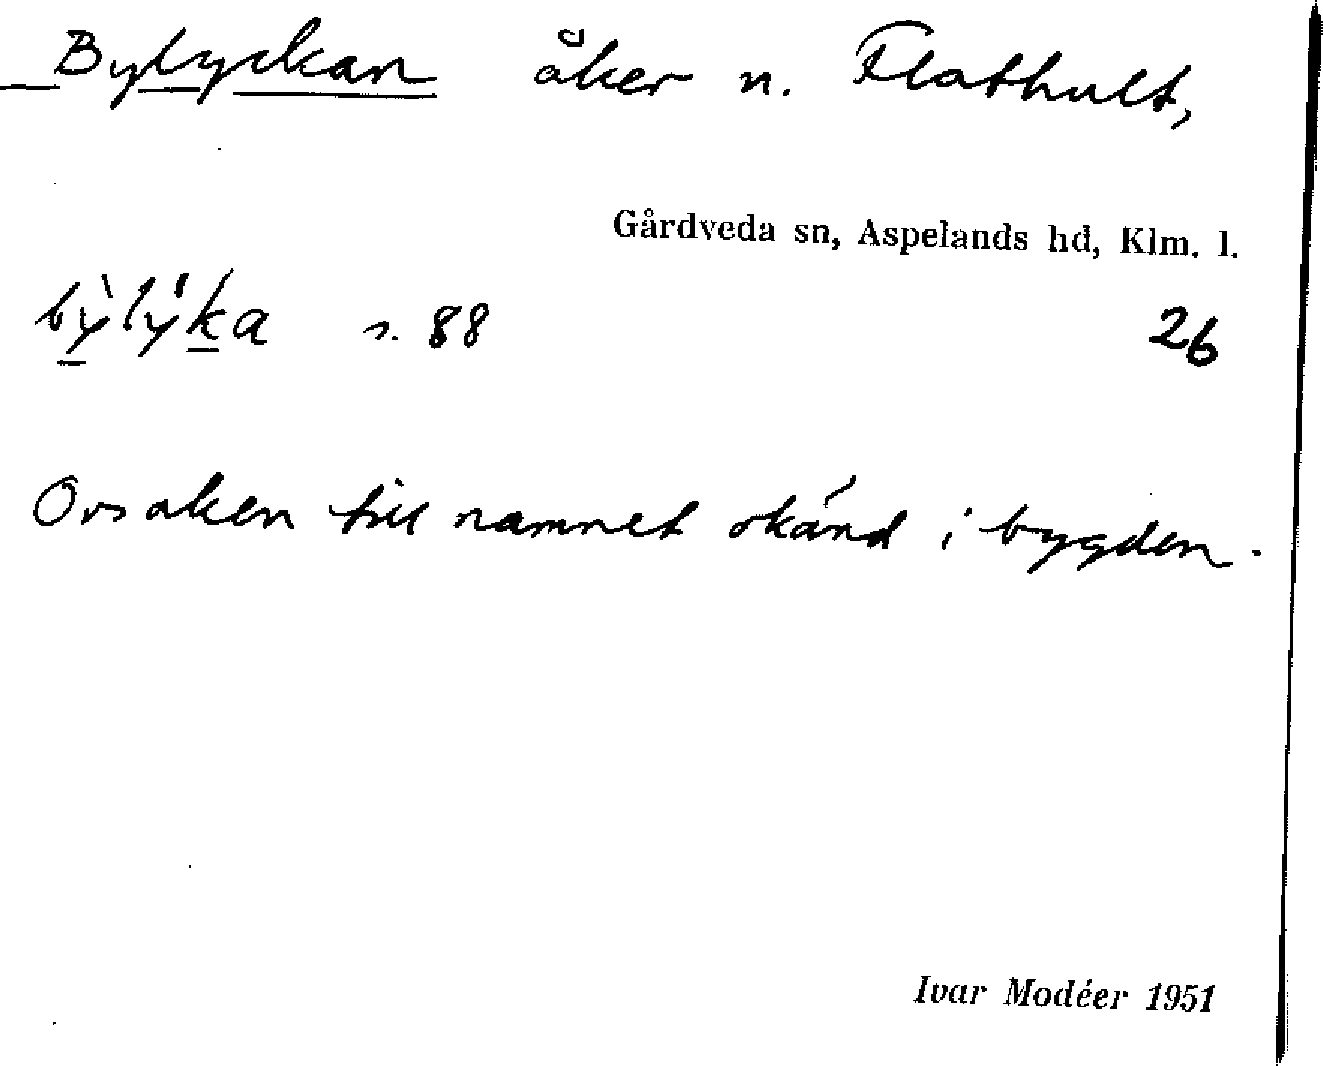 Bylyckan åker n. Flathult,
Gårdveda sn, Aspelands hd, Klm. l.
bỳlýka s. 88 26
Orsaken till namnet okänd i bygden.
Ivar Modéer 1951